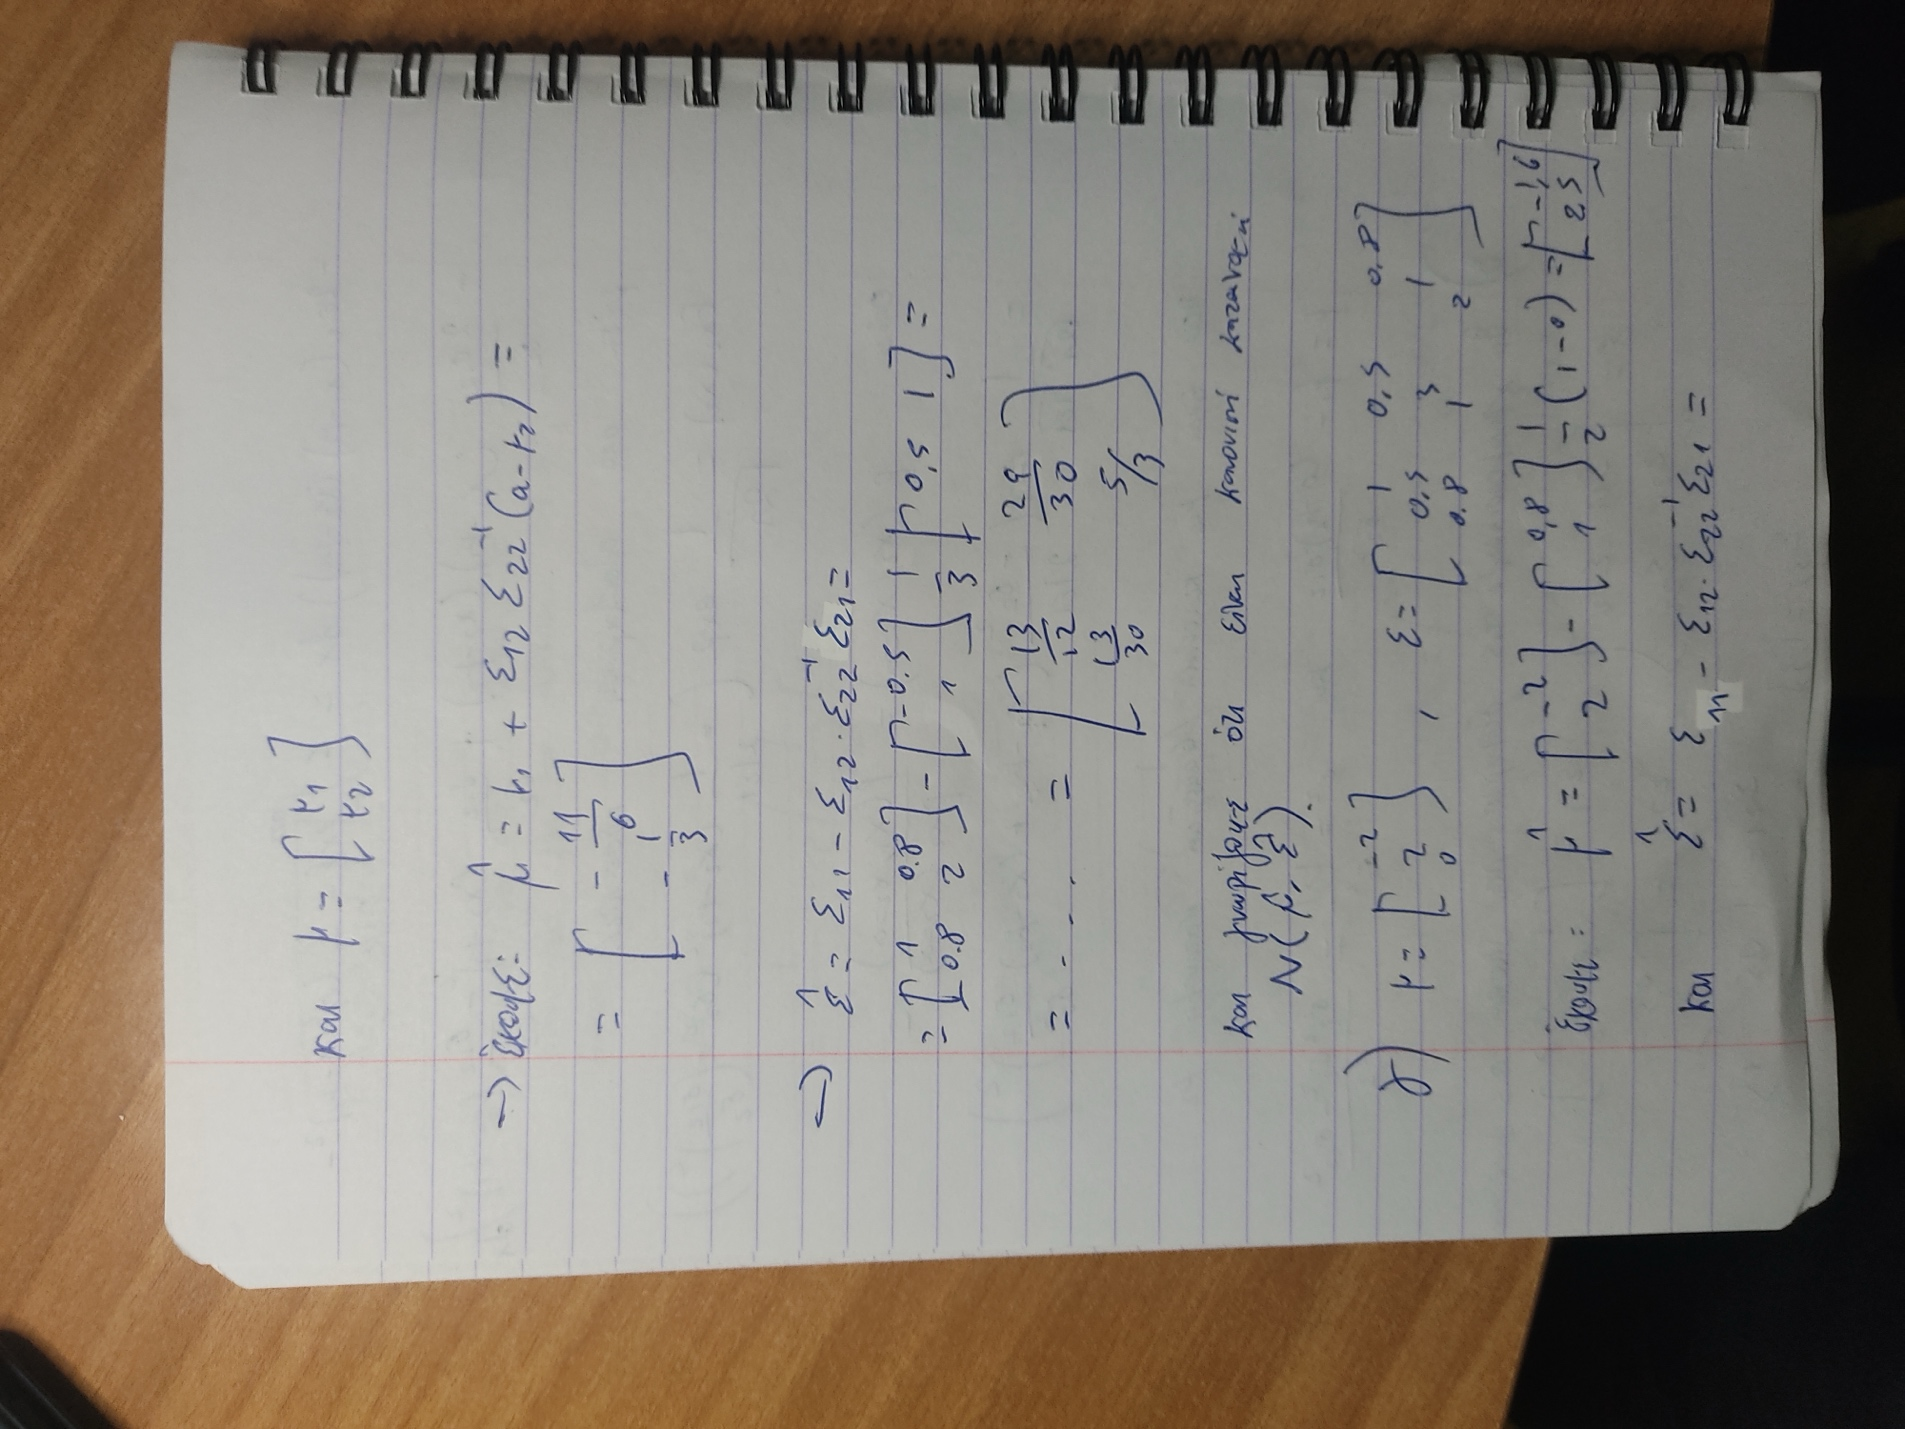 και μ = [μ1 μ2]
→ έχουμε: μ̂ = μ1 + Σ12 Σ22⁻¹ (a-μ2) =
= [ -11/6  -1/3 ]
→ Σ̂ = Σ11 - Σ12·Σ22⁻¹ Σ21 =
= [1 0.8 0.8 2] - [-0.5 1] 1/3 [0,5 1] =
= - - . . = [ 13/12 29/30 13/30 5/3 ]
και γνωρίζουμε ότι είναι κανονική κατανομή
N(μ̂, Σ̂).
γ) μ = [-2 2 0] , Σ = [1 1 0,5 0.8 0,5 3 1 0.8 1 2]
έχουμε: μ̂ = [-2 2] - [0,8 1] 1/2 (1-0) = [-1,6 2,5]
και Σ̂ = Σ11 - Σ12·Σ22⁻¹ Σ21 =